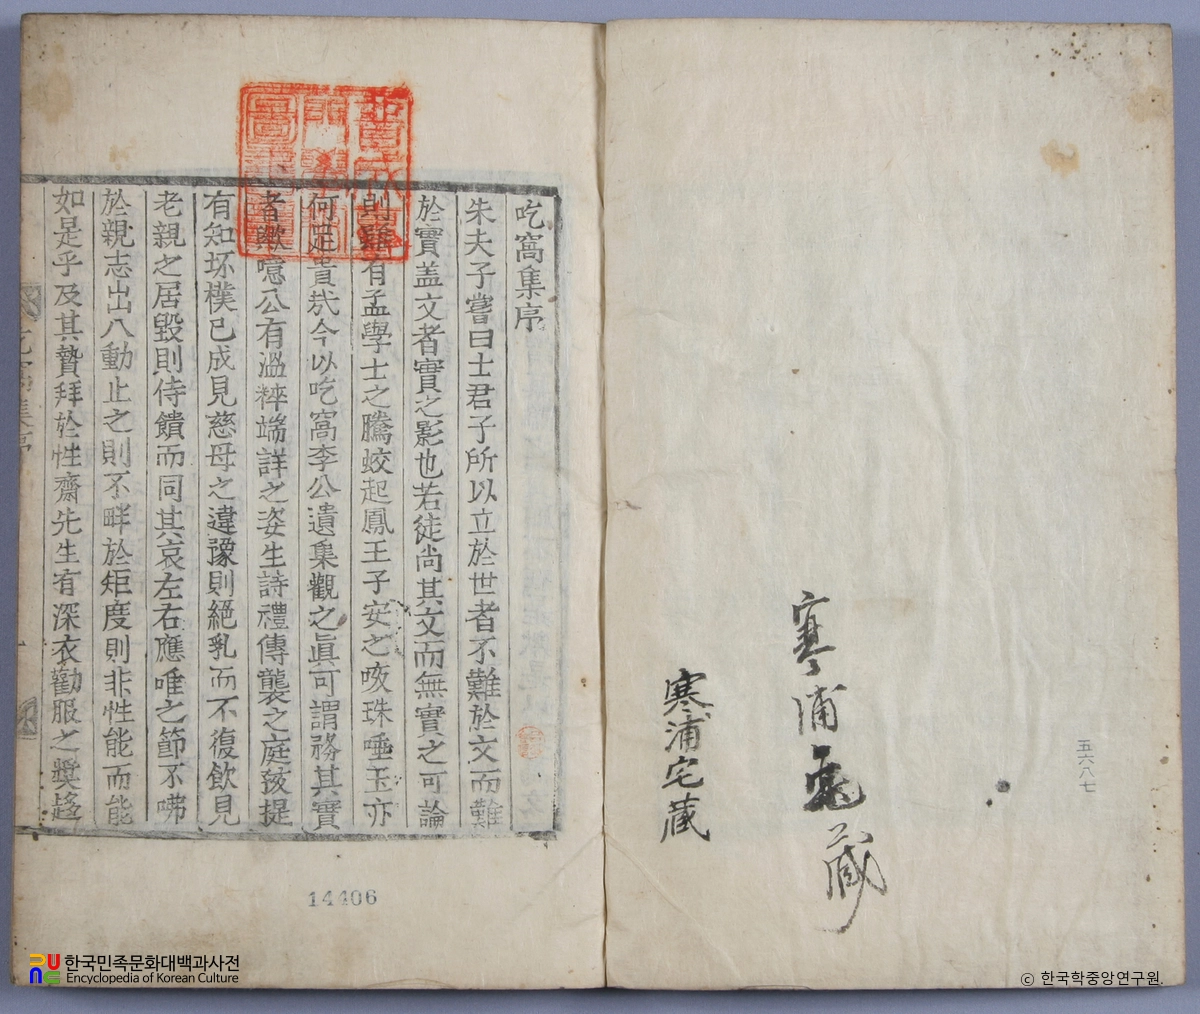 五六八七
寒浦宅藏
寒浦宅藏
吃窩集序
朱夫子嘗曰士君子所以立於世者不難於文而難
於實盖文者實之影也若徒尚其文而無實之可論
則雖有孟學士之騰蛟起鳳王子安之咳珠唾玉亦
何足貴㢤今以吃窩李公遺集觀之眞可謂務其實
者歟噫公有溫粹端詳之姿生詩禮傳襲之庭孩提
有知坏樸已成見慈母之違豫則絕乳而不復飮見
老親之居毀則侍饋而同其哀左右應唯之節不咈
於親志出入動止之則不畔於矩度則非性能而能
如是乎及其贄拜於性齋先生有深衣勸服之奬趍
14406
한국민족문화대백과사전
Encyclopedia of Korean Culture
ⓒ 한국학중앙연구원